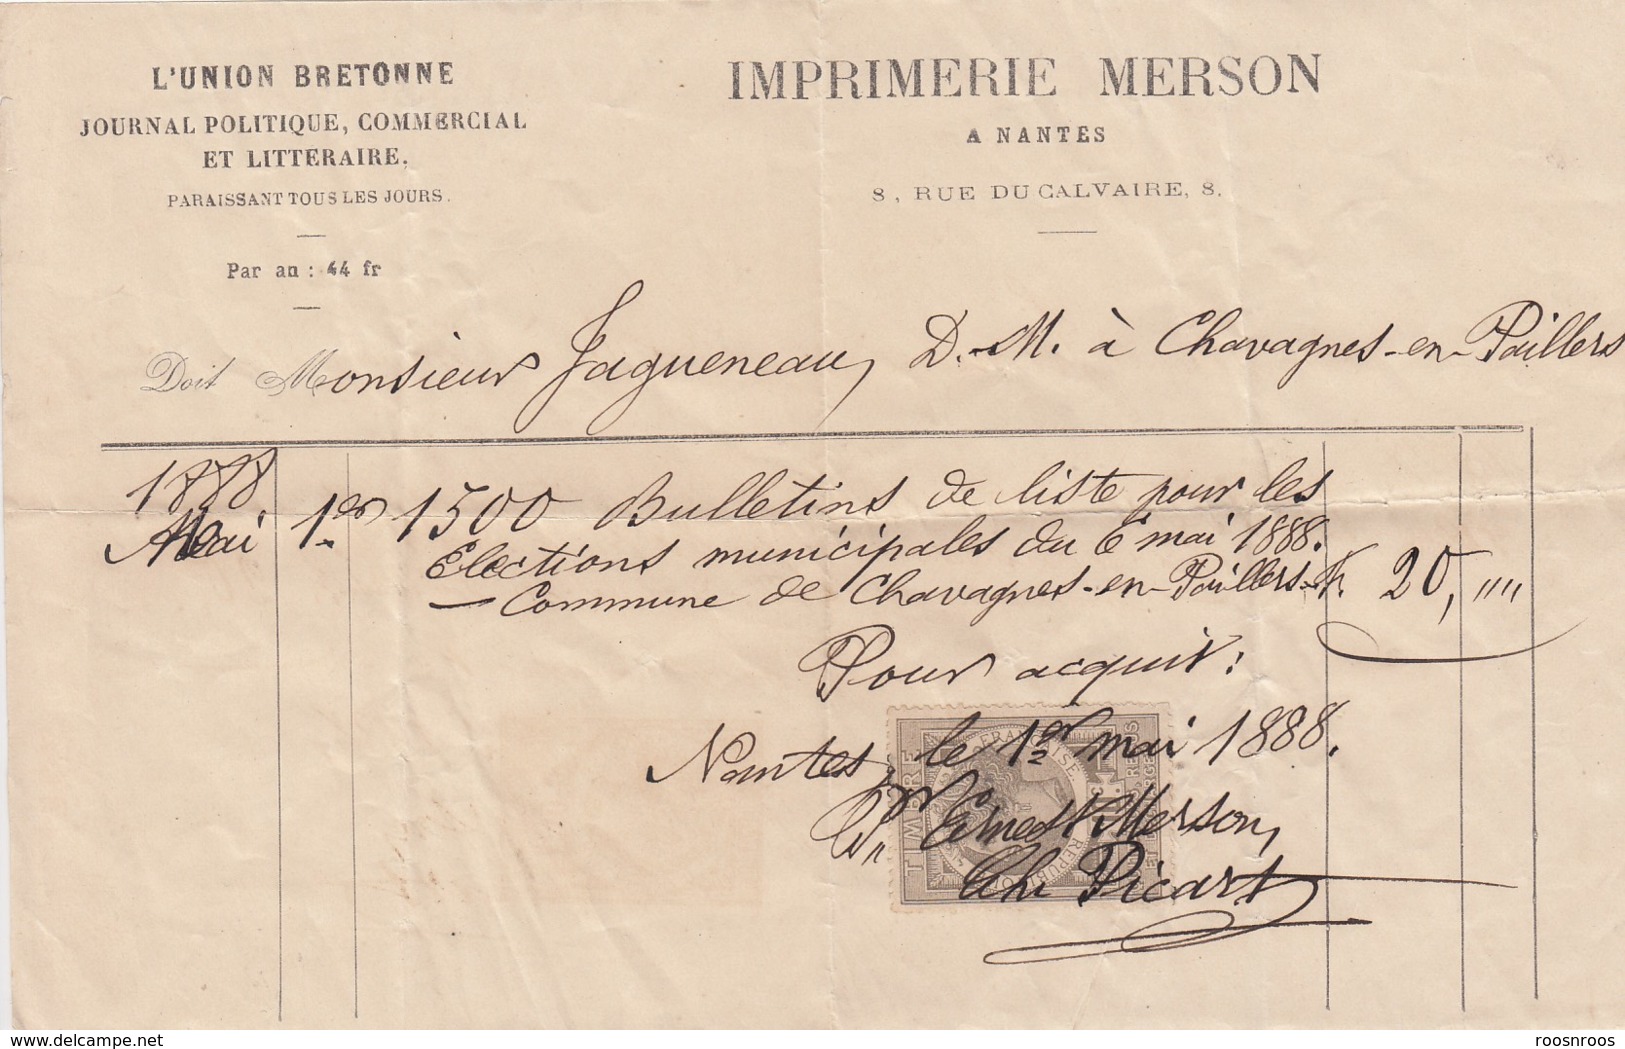 L'UNION BRETONNE
JOURNAL POLITIQUE, COMMERCIAL
ET LITTERAIRE,
PARAISSANT TOUS LES JOURS.
Par an : 44 fr
IMPRIMERIE MERSON
A NANTES
8, RUE DU CALVAIRE, 8.
Doit Monsieur Jagueneau, D.-M. à Chavagnes-en-Paillers
1888.
Mai 1er 1500 Bulletins de liste pour les
Elections municipales du 6 mai 1888.
— Commune de Chavagnes-en-Paillers - fr. 20, """
Pour acquit:
Nantes, le 1er mai 1888.
Ernest Merson,
Ch. Picart
TIMBRE
FRANÇAISE
RÉPUBLIQUE
delcampe.net
roosnroos